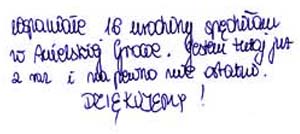 wspaniałe 18 urodziny spędziłam
w Anielskiej Grocie. Jestem tutaj już
2 raz i na pewno nie ostatni.
DZIĘKUJEMY!